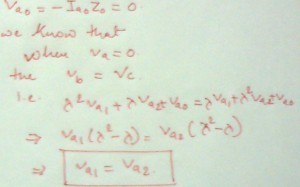 Va0 = -Ia0Z0 = 0.
we know that
when Va = 0
the Vb = Vc.
i.e. λ²Va1 + λVa2 + Va0 = λVa1 + λ²Va2 + Va0
⇒ Va1(λ² - λ) = Va2(λ² - λ)
⇒ Va1 = Va2.